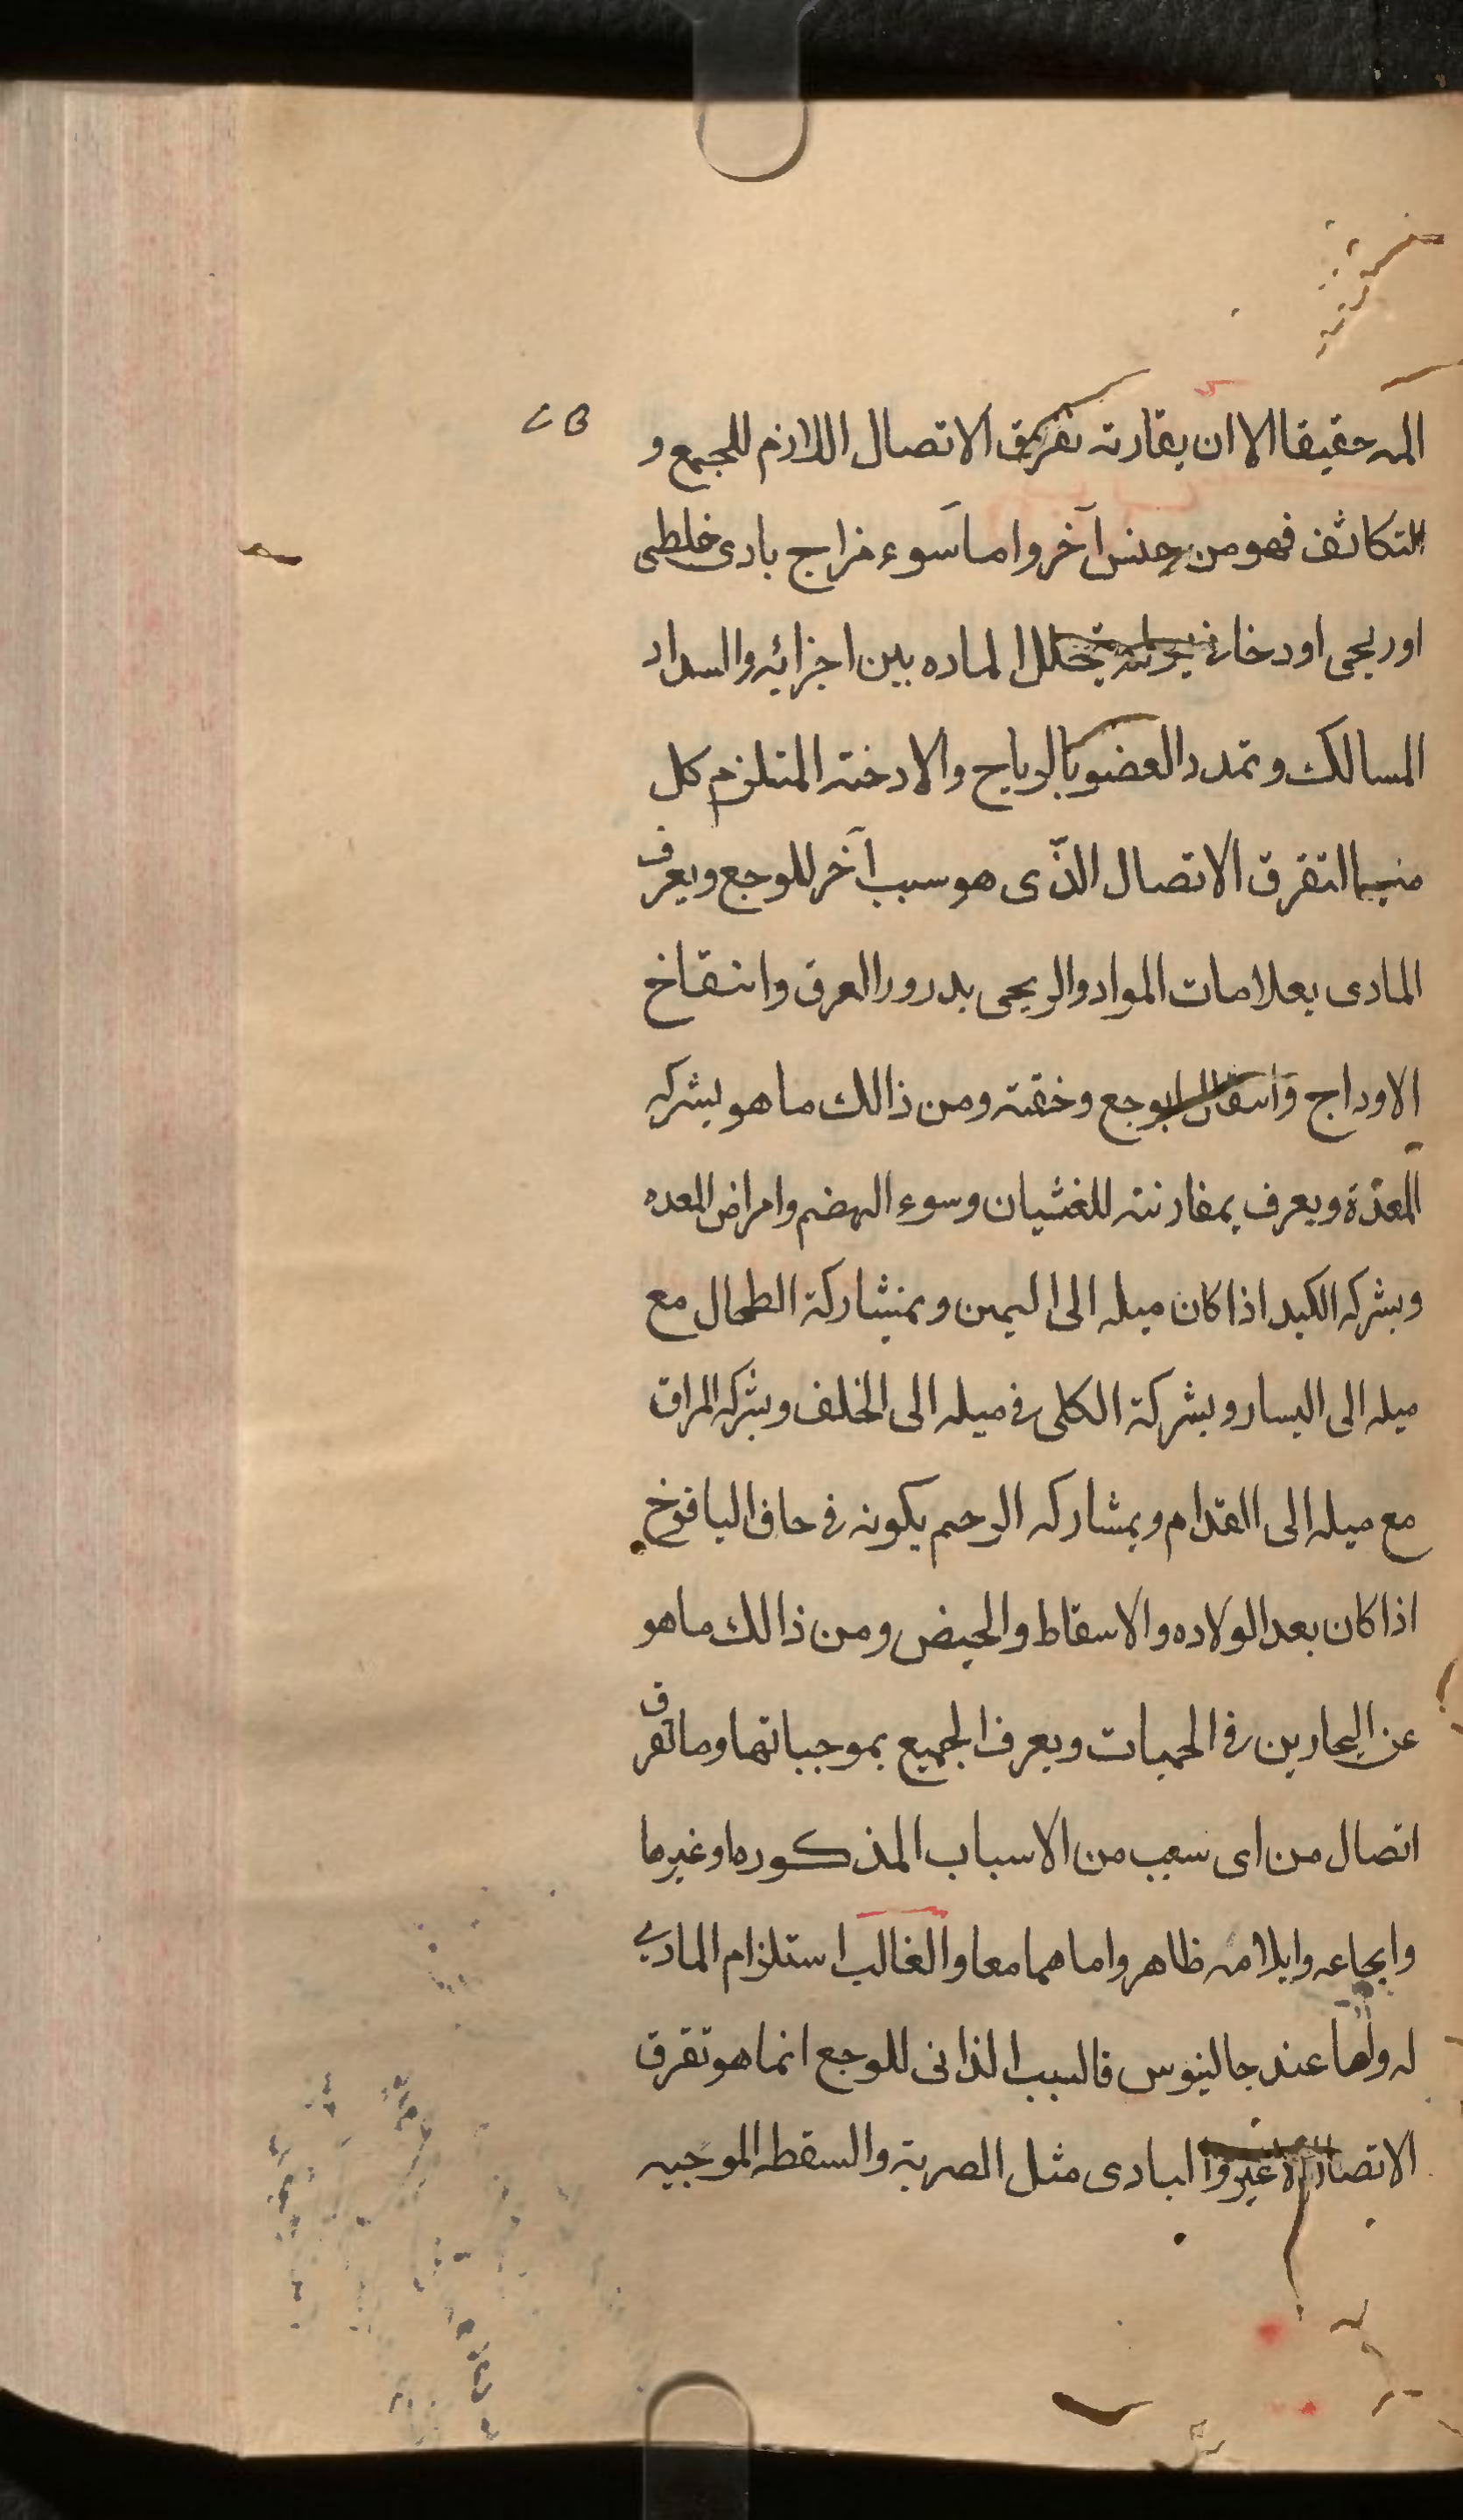 المه حقيقا الا ان يقارنه تفريق الاتصال اللازم للجمع و
التكاثف فهو من جنس آخر واما سوء مزاج بادى خلطى
اوريحى اودخانى يحلل الماده بين اجزائه والسداد
المسالك وتمدد العضو بالرياح والادخنه المتلزم كل
منها التفرق الاتصال الذّى هو سبب آخر للوجع ويعرف
المادى بعلامات المواد والريحى بدرور العرق وانتفاخ
الاوداج وانتقال الوجع وخفته ومن ذالك ما هو بشركه
المعدة ويعرف بمقارنته للغثيان وسوء الهضم وامراض المعده
وبشركه الكبد اذا كان ميله الى اليمين وبمشاركة الطحال مع
ميله الى اليسار وبشركة الكلى فى ميله الى الخلف وبشركه المراق
مع ميله الى القدام وبمشاركه الرحم بكونه فى حاف اليافوخ
اذا كان بعد الولاده والاسقاط والحيض ومن ذالك ما هو
عن البحارين فى الحميات ويعرف الجميع بموجباتها وما تفرق
اتصال من اى سبب من الاسباب المذكوره او غيرها
وايجاعه وايلامه ظاهر واما هما معا والغالب استلزام المادى
له ولها عند جالينوس فالسبب الذاتى للوجع انما هو تفرق
الاتصال لا غير والبادى مثل الضربة والسقطه الموجبه